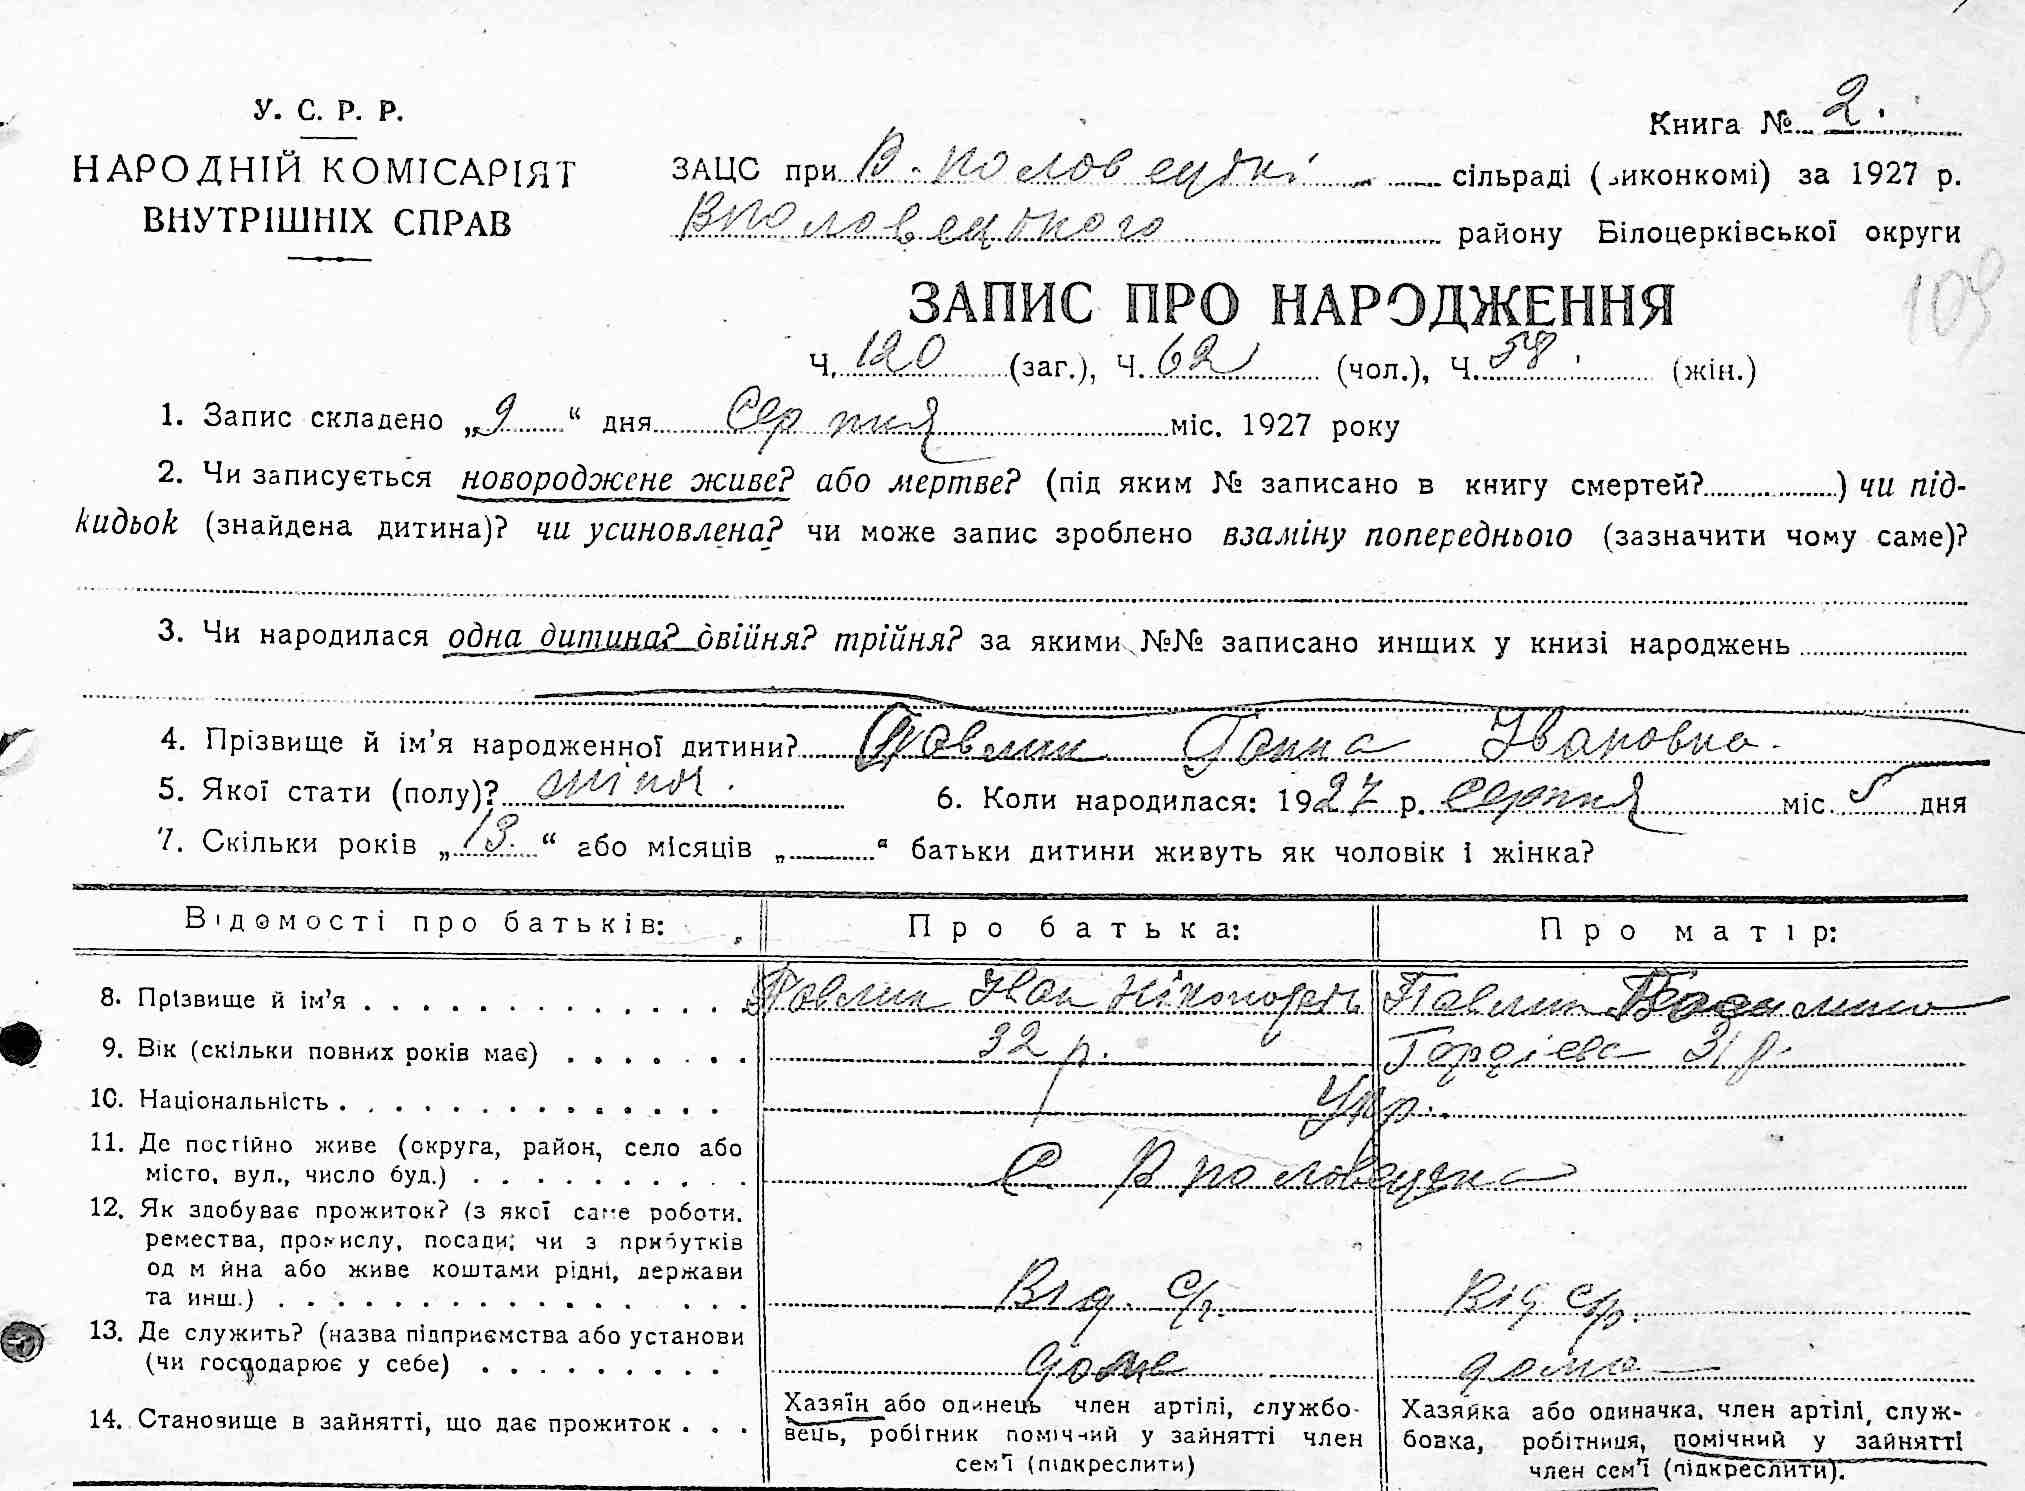 У. С. Р. Р.
НАРОДНІЙ КОМІСАРІЯТ
ВНУТРІШНІХ СПРАВ
Книга № 2.
ЗАЦС при В. Половецькі сільраді (виконкомі) за 1927 р.
Вполовецького району Білоцерківської округи
109
ЗАПИС ПРО НАРОДЖЕННЯ
Ч. 120 (заг.), Ч. 62 (чол.), Ч. 58 (жін.)
1. Запис складено „9“ дня Серпня міс. 1927 року
2. Чи записується новороджене живе? або мертве? (під яким № записано в книгу смертей?..........) чи під-
кидьок (знайдена дитина)? чи усиновлена? чи може запис зроблено взаміну попереднього (зазначити чому саме)?
3. Чи народилася одна дитина? двійня? трійня? за якими №№ записано инших у книзі народжень
4. Прізвище й ім'я народженної дитини? Павлик Ганна Івановна.
5. Якої стати (полу)? жіноч. 6. Коли народилася: 1927 р. серпня міс. 5 дня
7. Скільки років „13“ або місяців „—“ батьки дитини живуть як чоловік і жінка?
Відомості про батьків: Про батька: Про матір:
8. Прізвище й ім'я . . . Павлик Іван Павлик Василина
9. Вік (скільки повних років має) . . . 32 р. Гордіева 31 р.
10. Національність . . . Укр.
11. Де постійно живе (округа, район, село або
місто, вул., число буд.) . . . С. В половецьке
12. Як здобуває прожиток? (з якої саме роботи,
ремества, промислу, посади; чи з прибутків
од майна або живе коштами рідні, держави
та инш.) . . . Від с/г. Від с/г.
13. Де служить? (назва підприємства або установи
(чи господарює у себе) . . . дома дома
14. Становище в зайнятті, що дає прожиток . . .
Хазяїн або одинець член артілі, службо-
вець, робітник помічний у зайнятті член
сем'ї (підкреслити)
Хазяйка або одиначка, член артілі, служ-
бовка, робітниця, помічний у зайнятті
член сем'ї (підкреслити).